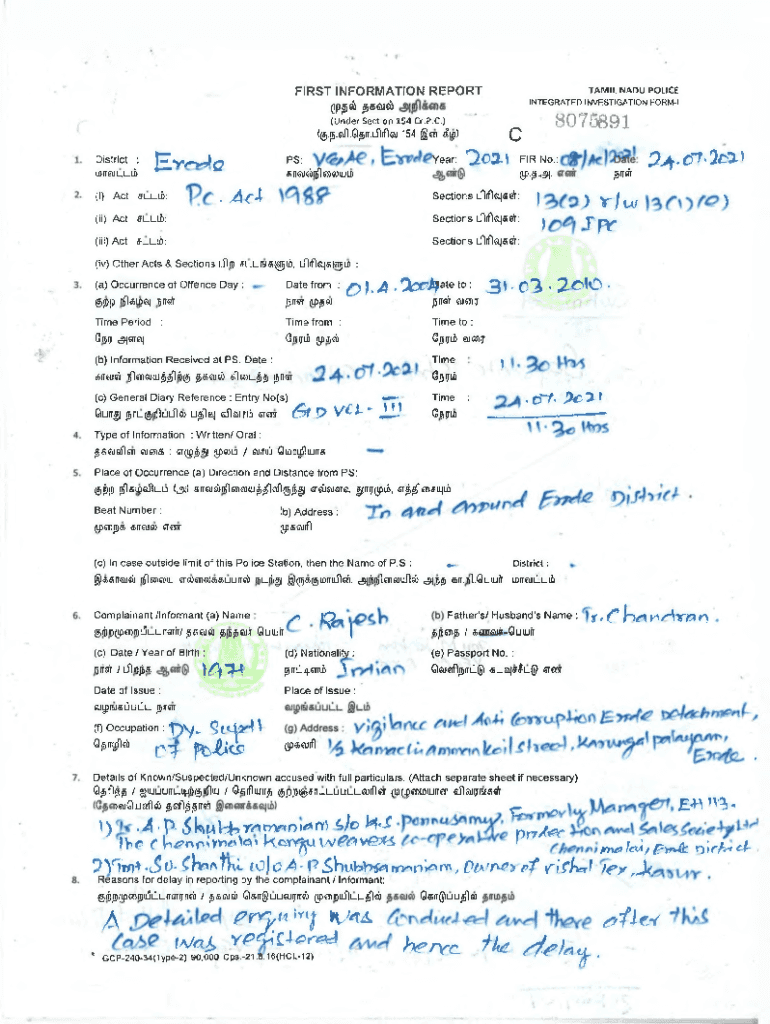 FIRST INFORMATION REPORT
TAMIL NADU POLICE
முதல் தகவல் அறிக்கை
INTEGRATED INVESTIGATION FORM-I
(Under Section 154 Cr.P.C.)
8075891
(கு.ந.வி.தொ.பிரிவு 154 இன் கீழ்)
C
1. District : Erode PS: V&AC, Erode Year: 2021 FIR No.: 08/AC/2021 Date: 24.07.2021
மாவட்டம் காவல்நிலையம் ஆண்டு மு.த.அ. எண் நாள்
2. (i) Act சட்டம்: P.C. Act 1988 Sections பிரிவுகள்: 13(2) r/w 13(1)(e)
(ii) Act சட்டம்: Sections பிரிவுகள்: 109 IPC
(iii) Act சட்டம்: Sections பிரிவுகள்:
(iv) Other Acts & Sections பிற சட்டங்களும், பிரிவுகளும் :
3. (a) Occurrence of Offence Day : - Date from : 01.4. Date to : 31.03.2010.
குற்ற நிகழ்வு நாள் நாள் முதல் நாள் வரை
Time Period : Time from : Time to :
நேர அளவு நேரம் முதல் நேரம் வரை
(b) Information Received at PS. Date : 24.07.2021 Time : 11.30 Hrs
காவல் நிலையத்திற்கு தகவல் கிடைத்த நாள் நேரம்
(c) General Diary Reference : Entry No(s) GD VCL - III Time : 24.07.2021
பொது நாட்குறிப்பில் பதிவு விவரம் எண் நேரம் 11.30 Hrs
4. Type of Information : Written/ Oral :
தகவலின் வகை : எழுத்து மூலம் / வாய் மொழியாக -
5. Place of Occurrence (a) Direction and Distance from PS:
குற்ற நிகழ்விடம் (அ) காவல்நிலையத்திலிருந்து எவ்வளவு தூரமும், எத்திசையும்
Beat Number : (b) Address : In and around Erode District.
முறைக் காவல் எண் முகவரி
(c) In case outside limit of this Police Station, then the Name of P.S : - District : -
இக்காவல் நிலைய எல்லைக்கப்பால் நடந்து இருக்குமாயின், அந்நிலையில் அந்த கா.நி.பெயர் மாவட்டம்
6. Complainant /Informant (a) Name : C. Rajesh (b) Father's/ Husband's Name : Tr. Chandran.
குற்றமுறையீட்டாளர்/ தகவல் தந்தவர் பெயர் தந்தை / கணவர் பெயர்
(c) Date / Year of Birth : 1971 (d) Nationality : Indian (e) Passport No. :
நாள் / பிறந்த ஆண்டு நாட்டினம் வெளிநாட்டு கடவுச்சீட்டு எண்
Date of Issue : Place of Issue :
வழங்கப்பட்ட நாள் வழங்கப்பட்ட இடம்
(f) Occupation : Dy. Supdt (g) Address : Vigilance and Anti Corruption Erode Detachment,
தொழில் of Police முகவரி 1/2 Kamachiammankoil street, Karungalpalayam,
Erode.
7. Details of Known/Suspected/Unknown accused with full particulars. (Attach separate sheet if necessary)
தெரிந்த / ஐயப்பாட்டிற்குரிய / தெரியாத குற்றஞ்சாட்டப்பட்டவரின் முழுமையான விவரங்கள்
(தேவையெனில் தனித்தாள் இணைக்கவும்)
1) Tr. A.P. Shubhramaniam s/o K.S. Ponnusamy, Formerly Manager, EH 113.
The Chennimalai Kongu weavers co-operative production and Sales Society Ltd
Chennimalai, Erode District.
2) Tmt. Su. Shanthi w/o A.P. Shubhramaniam, Owner of Vishal Tex, Karur.
8. Reasons for delay in reporting by the complainant / Informant:
குற்றமுறையீட்டாளரால் / தகவல் கொடுப்பவரால் முறையீட்டதில் தகவல் கொடுப்பதில் தாமதம்
A Detailed enquiry was Conducted and there after this
case was registered and hence the delay.
* GCP-240-34(Type-2) 90,000 Cps.-21.6.16(HCL-12)